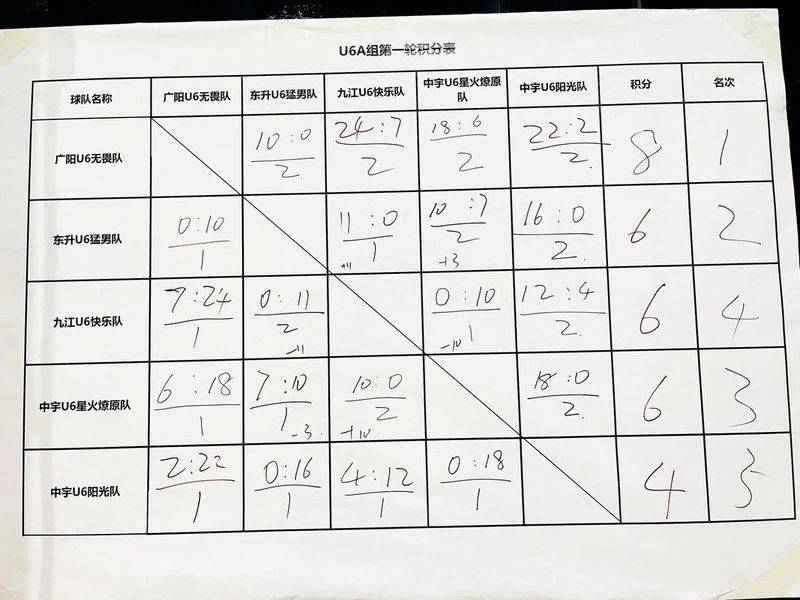 U6A组第一轮积分表
球队名称 广阳U6无畏队 东升U6猛男队 九江U6快乐队 中宇U6星火燎原队 中宇U6阳光队 积分 名次
广阳U6无畏队 10:0 2 24:7 2 18:6 2 22:2 2 8 1
东升U6猛男队 0:10 1 11:0 1 +11 10:7 2 +3 16:0 2 6 2
九江U6快乐队 7:24 1 0:11 2 -11 0:10 1 -10 12:4 2 6 4
中宇U6星火燎原队 6:18 1 7:10 1 -3 10:0 2 +10 18:0 2 6 3
中宇U6阳光队 2:22 1 0:16 1 4:12 1 0:18 1 4 5